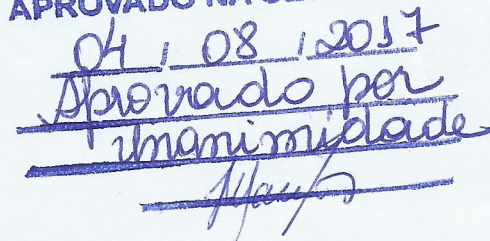 APROVADO NA
04 / 08 / 2017
Aprovado por
unanimidade